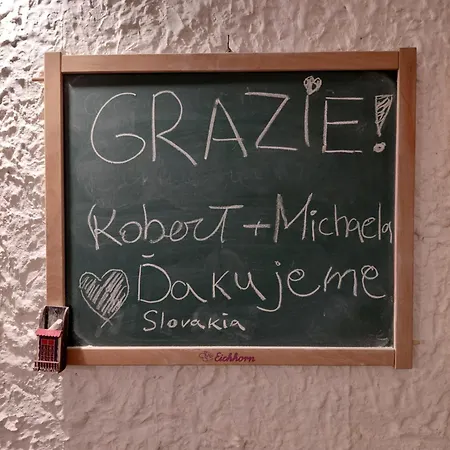 GRAZIE!
Robert + Michaela
Ďakujeme
Slovakia
Eichhorn